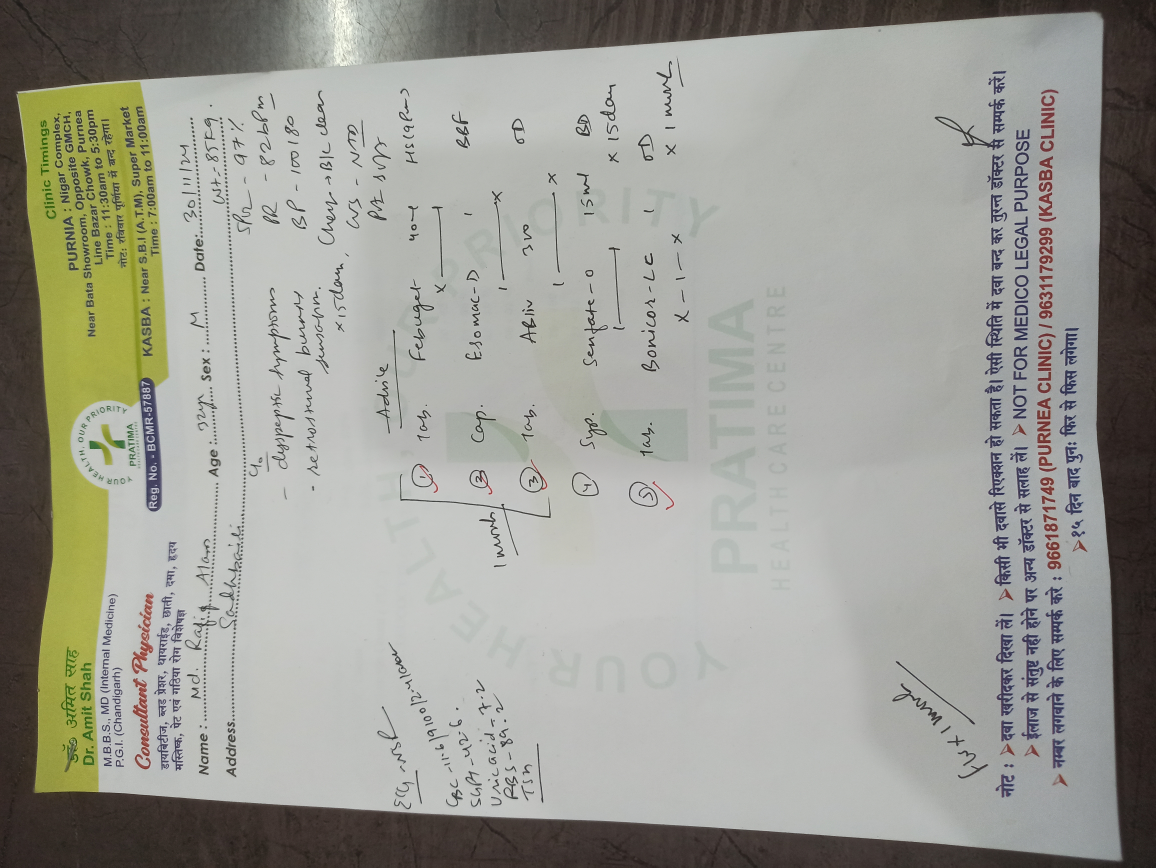 डॉ० अमित साह
Dr. Amit Shah
M.B.B.S., MD (Internal Medicine)
P.G.I. (Chandigarh)
Consultant Physician
डायबिटीज, ब्लड प्रेशर, थायराईड, छाती, दमा, हृदय
मस्तिष्क, पेट एवं गठिया रोग विशेषज्ञ
YOUR HEALTH, OUR PRIORITY
PRATIMA
Reg. No. - BCMR-57887
Clinic Timings
PURNIA : Nigar Complex,
Near Bata Showroom, Opposite GMCH,
Line Bazar Chowk, Purnea
Time : 11:30am to 5:30pm
नोट: रविवार पूर्णिया में बन्द रहेगा।
KASBA : Near S.B.I (A.T.M), Super Market
Time : 7:00am to 11:00am
Name : Md. Rafiq Alam Age : 32yr Sex : M Date: 30/11/24
Address Wt - 85kg.
SPO2 - 97%
PR - 82bpm
BP - 100/80
Chest → B/L clear
CVS - NAD
C/o
- dyspeptic symptoms
- retrosternal burning
x 15 days,
ECG - NSR
SGPT - 42.6.
Uric acid - 7.2
RBS - 89.2
TSH
Advise
1 month
① Tab. Febuget 40 HS (9pm)
② Cap. Esomac-D BBF
③ Tab. ABliv 300 OD
④ Syp. Senfate-O 15ml BD
x 15 days
⑤ Tab. Bonicor-LC OD
x - 1 - x x 1 month
YOUR HEALTH, OUR PRIORITY
PRATIMA
HEALTH CARE CENTRE
F/U x 1 month
नोट : ➤ दवा खरीदकर दिखा लें। ➤ किसी भी दवासे रिएक्शन हो सकता है। ऐसी स्थिति में दवा बन्द कर तुरन्त डॉक्टर से सम्पर्क करें।
➤ ईलाज से संतुष्ट नही होने पर अन्य डॉक्टर से सलाह लें। ➤ NOT FOR MEDICO LEGAL PURPOSE
➤ नम्बर लगवाने के लिए सम्पर्क करे : 9661871749 (PURNEA CLINIC) / 9631179299 (KASBA CLINIC)
➤ १५ दिन बाद पुनः फिर से फिस लगेगा।